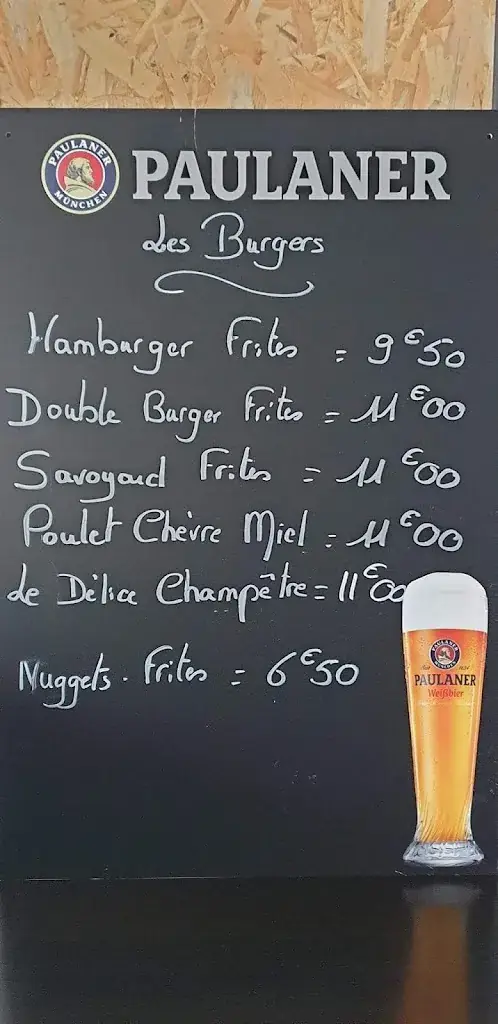 PAULANER
MÜNCHEN
PAULANER
Les Burgers
Hamburger Frites = 9€50
Double Burger Frites = 11€00
Savoyard Frites = 11€00
Poulet Chèvre Miel = 11€00
Le Délice Champêtre = 11€00
Nuggets. Frites = 6€50
PAULANER
PAULANER
Weißbier